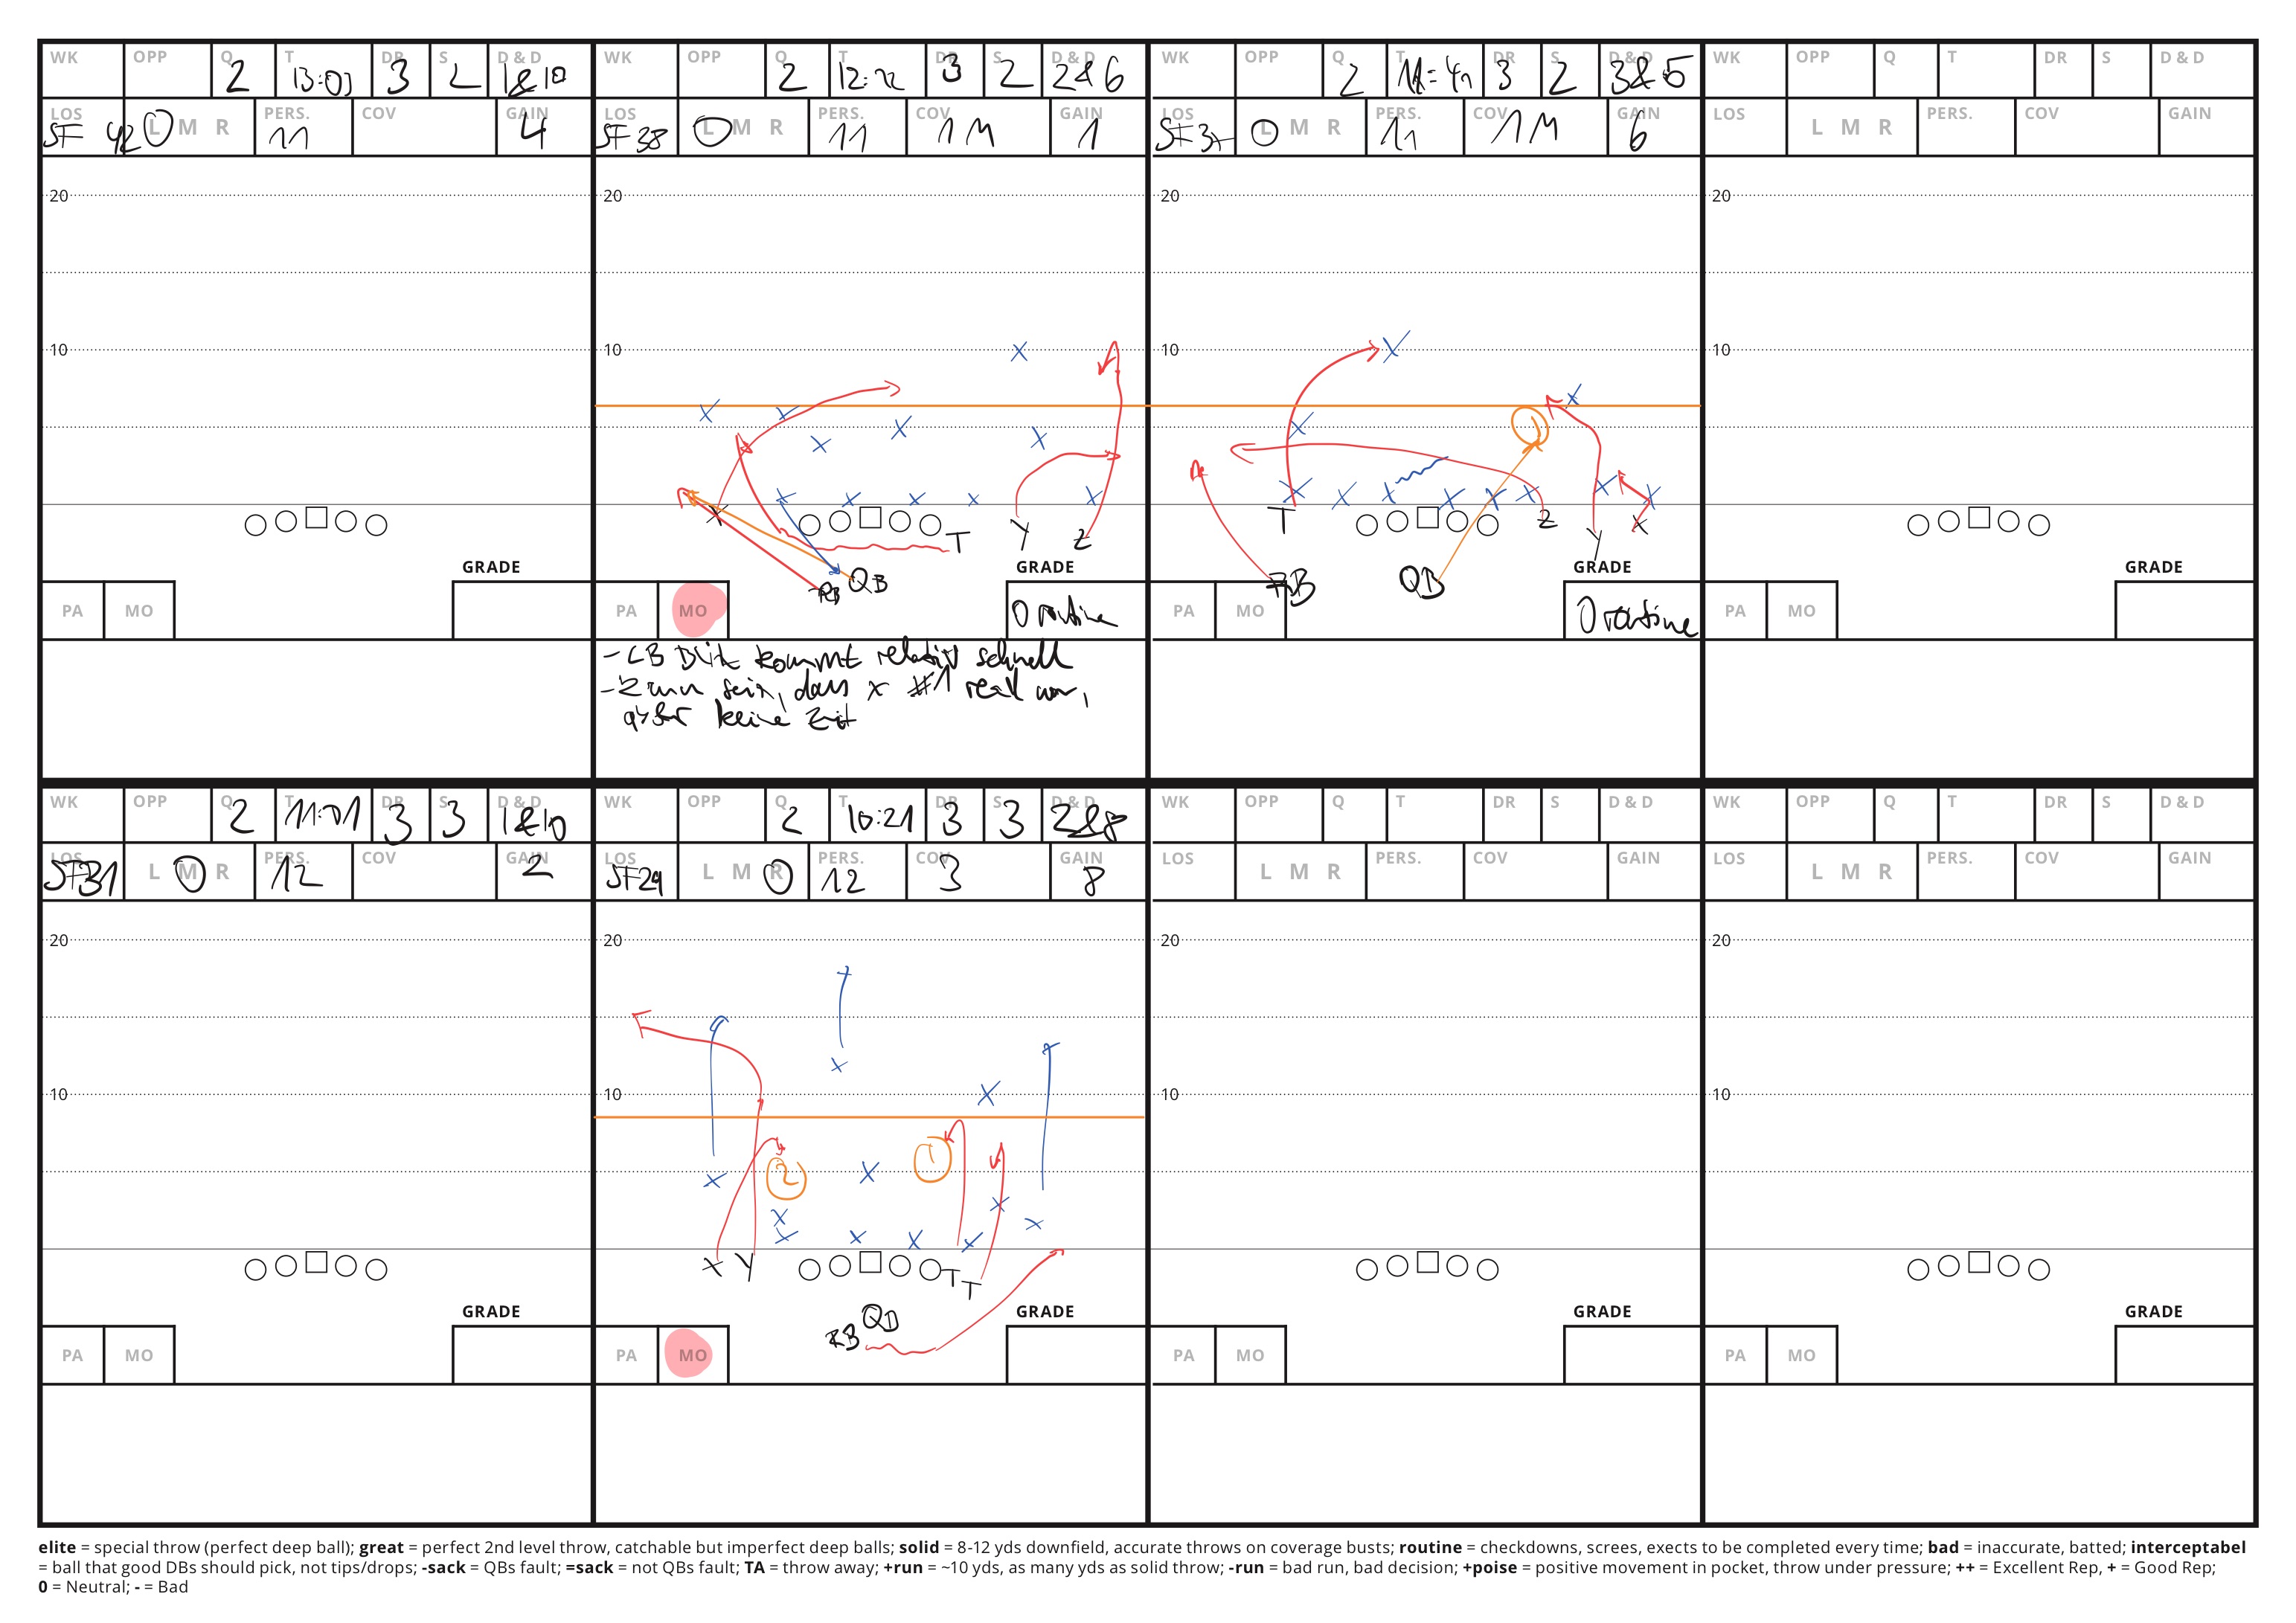 WK OPP Q 2 T 13:03 DR 3 S 2 D & D 1&10
LOS SF 42 L M R PERS. 11 COV GAIN 4
20
10
GRADE
PA MO
WK OPP Q 2 T 12:22 DR 3 S 2 D & D 2&6
LOS SF38 L M R PERS. 11 COV 1M GAIN 1
20
10
X T Y Z
RB QB
GRADE
PA MO 0 routine
- CB Blitz kommt relativ schnell
- kann sein, dass x #1 read war,
keine Zeit
WK OPP Q 2 T DR 3 S 2 D & D 3&5
LOS L M R PERS. 11 COV 1M GAIN 6
20
10
1
T Z Y X
RB QB
GRADE
PA MO 0 routine
WK OPP Q T DR S D & D
LOS L M R PERS. COV GAIN
20
10
GRADE
PA MO
WK OPP Q 2 T 11:01 DR 3 S 3 D & D 1&10
LOS SF31 L M R PERS. 12 COV GAIN 2
20
10
GRADE
PA MO
WK OPP Q 2 T 10:21 DR 3 S 3 D & D 2&8
LOS SF29 L M R PERS. 12 COV 3 GAIN 8
20
10
2 1
X Y T T
RB QB
GRADE
PA MO
WK OPP Q T DR S D & D
LOS L M R PERS. COV GAIN
20
10
GRADE
PA MO
WK OPP Q T DR S D & D
LOS L M R PERS. COV GAIN
20
10
GRADE
PA MO
elite = special throw (perfect deep ball); great = perfect 2nd level throw, catchable but imperfect deep balls; solid = 8-12 yds downfield, accurate throws on coverage busts; routine = checkdowns, screes, exects to be completed every time; bad = inaccurate, batted; interceptabel
= ball that good DBs should pick, not tips/drops; -sack = QBs fault; =sack = not QBs fault; TA = throw away; +run = ~10 yds, as many yds as solid throw; -run = bad run, bad decision; +poise = positive movement in pocket, throw under pressure; ++ = Excellent Rep, + = Good Rep;
0 = Neutral; - = Bad